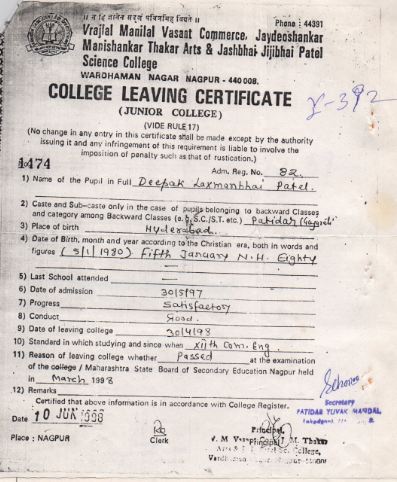 ॥ न हि ज्ञानेन सदृशं पवित्रमिह विद्यते ॥
Phone : 44391
Vrajlal Manilal Vasant Commerce, Jaydeoshankar
Manishankar Thakar Arts & Jashbhai Jijibhai Patel
Science College
WARDHAMAN NAGAR NAGPUR - 440 008.
COLLEGE LEAVING CERTIFICATE
(JUNIOR COLLEGE)
(VIDE RULE 17)
(No change in any entry in this certificate shall be made except by the authority
issuing it and any infringement of this requirement is liable to involve the
imposition of penalty such as that of rustication.)
4474
Adm. Reg. No. 82.
1) Name of the Pupil in Full Deepak Laxmanbhai Patel.
2) Caste and Sub-caste only in the case of pupils belonging to backward Classes
and category among Backward Classes (e.g. S.C./S.T. etc.) Patidar
3) Place of birth Hyderabad.
4) Date of Birth, month and year according to the Christian era, both in words and
figures (5/1/1980) Fifth January N.H. Eighty
5) Last School attended —
6) Date of admission 30/5/97
7) Progress Satisfactory
8) Conduct Good.
9) Date of leaving college 30/4/98
10) Standard in which studying and since when XIIth Com. Eng
11) Reason of leaving college whether Passed at the examination
of the college / Maharashtra State Board of Secondary Education Nagpur held
in March 1998
12) Remarks
Certified that above information is in accordance with College Register.
Date 10 JUN 1998
Secretary
PATIDAR YUVAK MANDAL
Place : NAGPUR
Clerk
Principal,
Principal
V. M. Vasant J. M. Thakar
College,